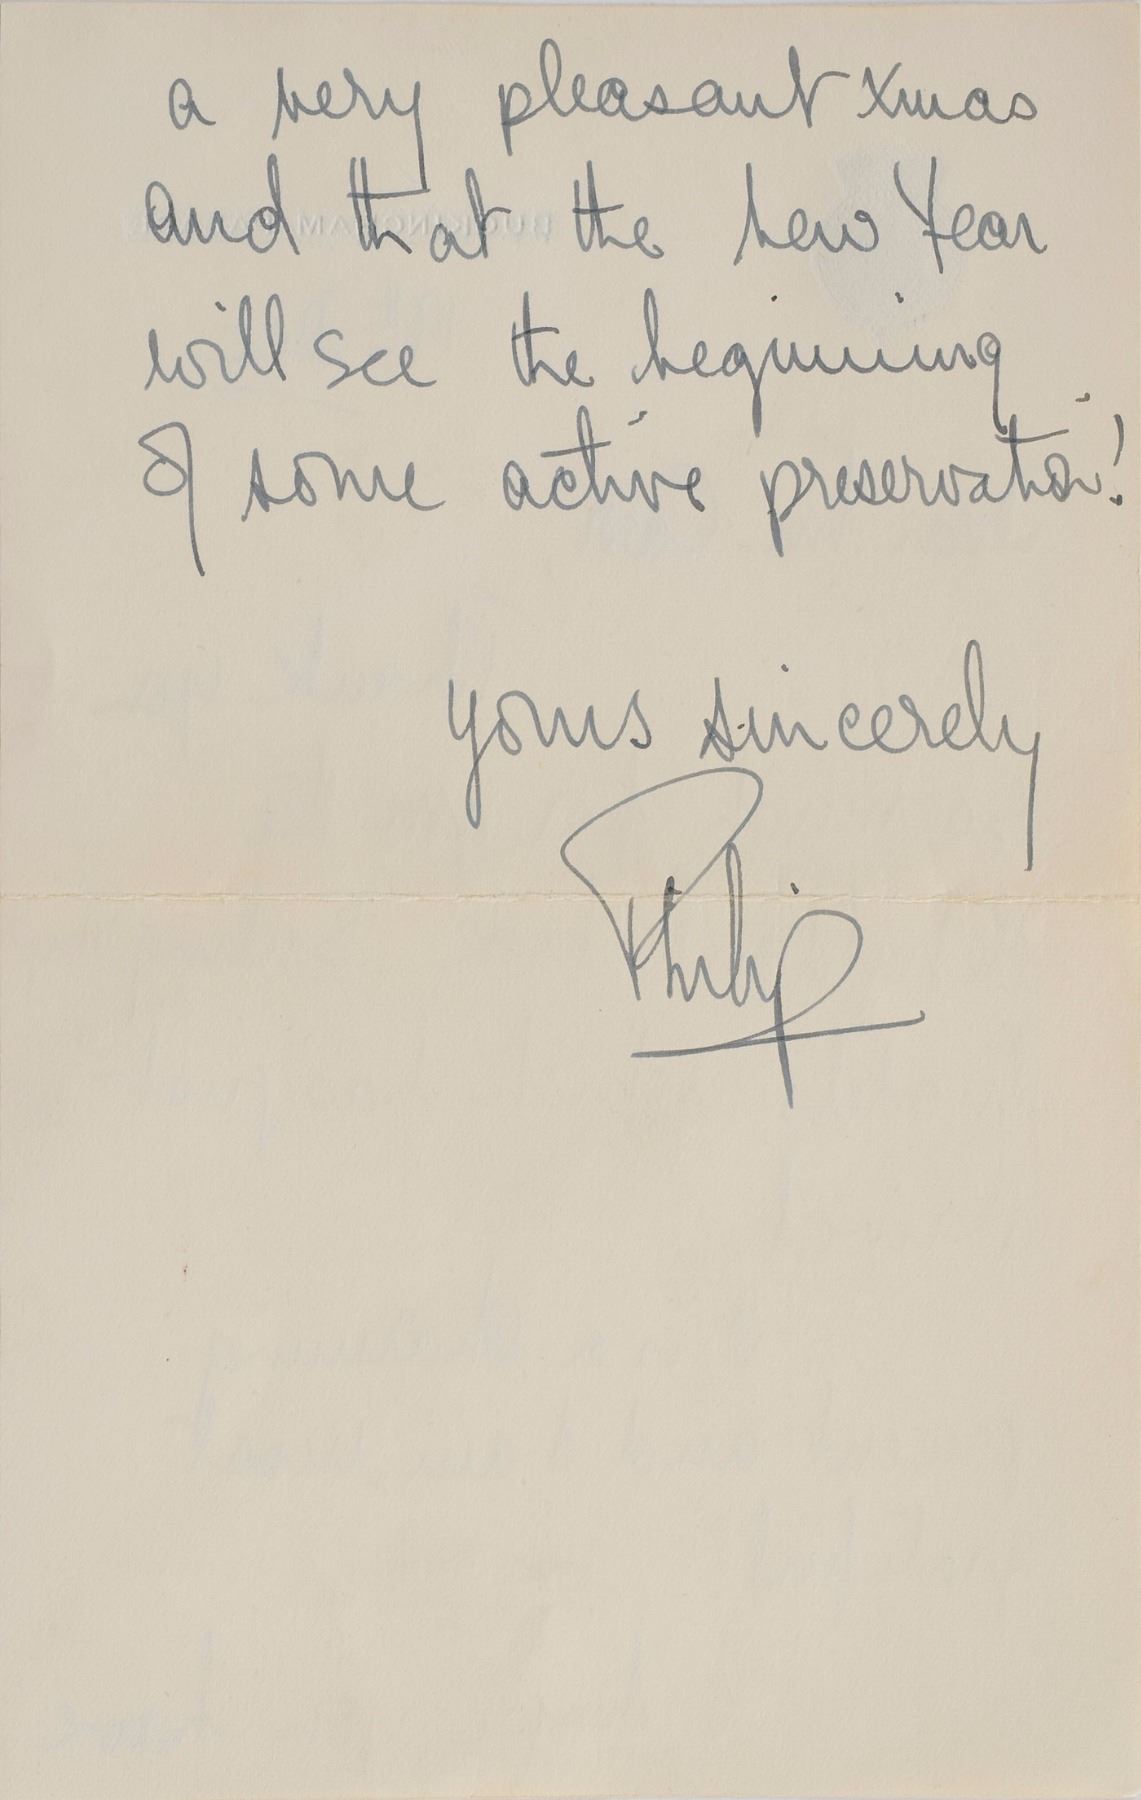 a very pleasant Xmas
and that the New Year
will see the beginning
of some active preservation!
Yours sincerely
Philip